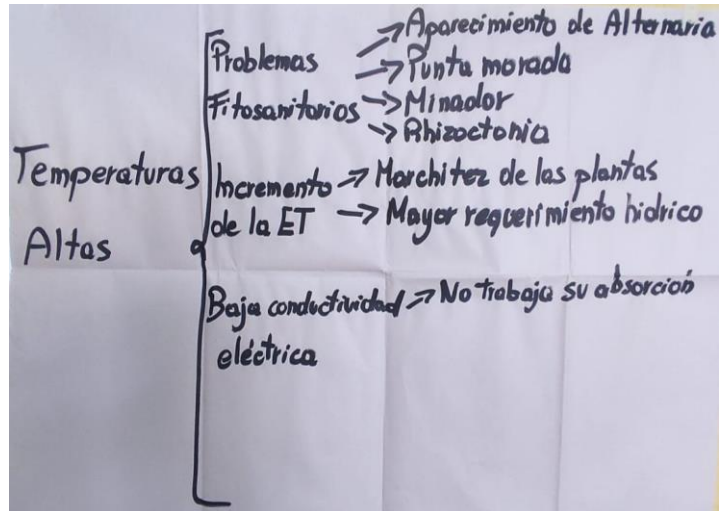 Temperaturas
Altas
Problemas
Fitosanitarios
→ Aparecimiento de Alternaria
→ Punta morada
→ Minador
→ Rhizoctonia
Incremento
de la ET
→ Marchitez de las plantas
→ Mayor requerimiento hidrico
Baja conductividad
eléctrica
→ No trabaja su absorción